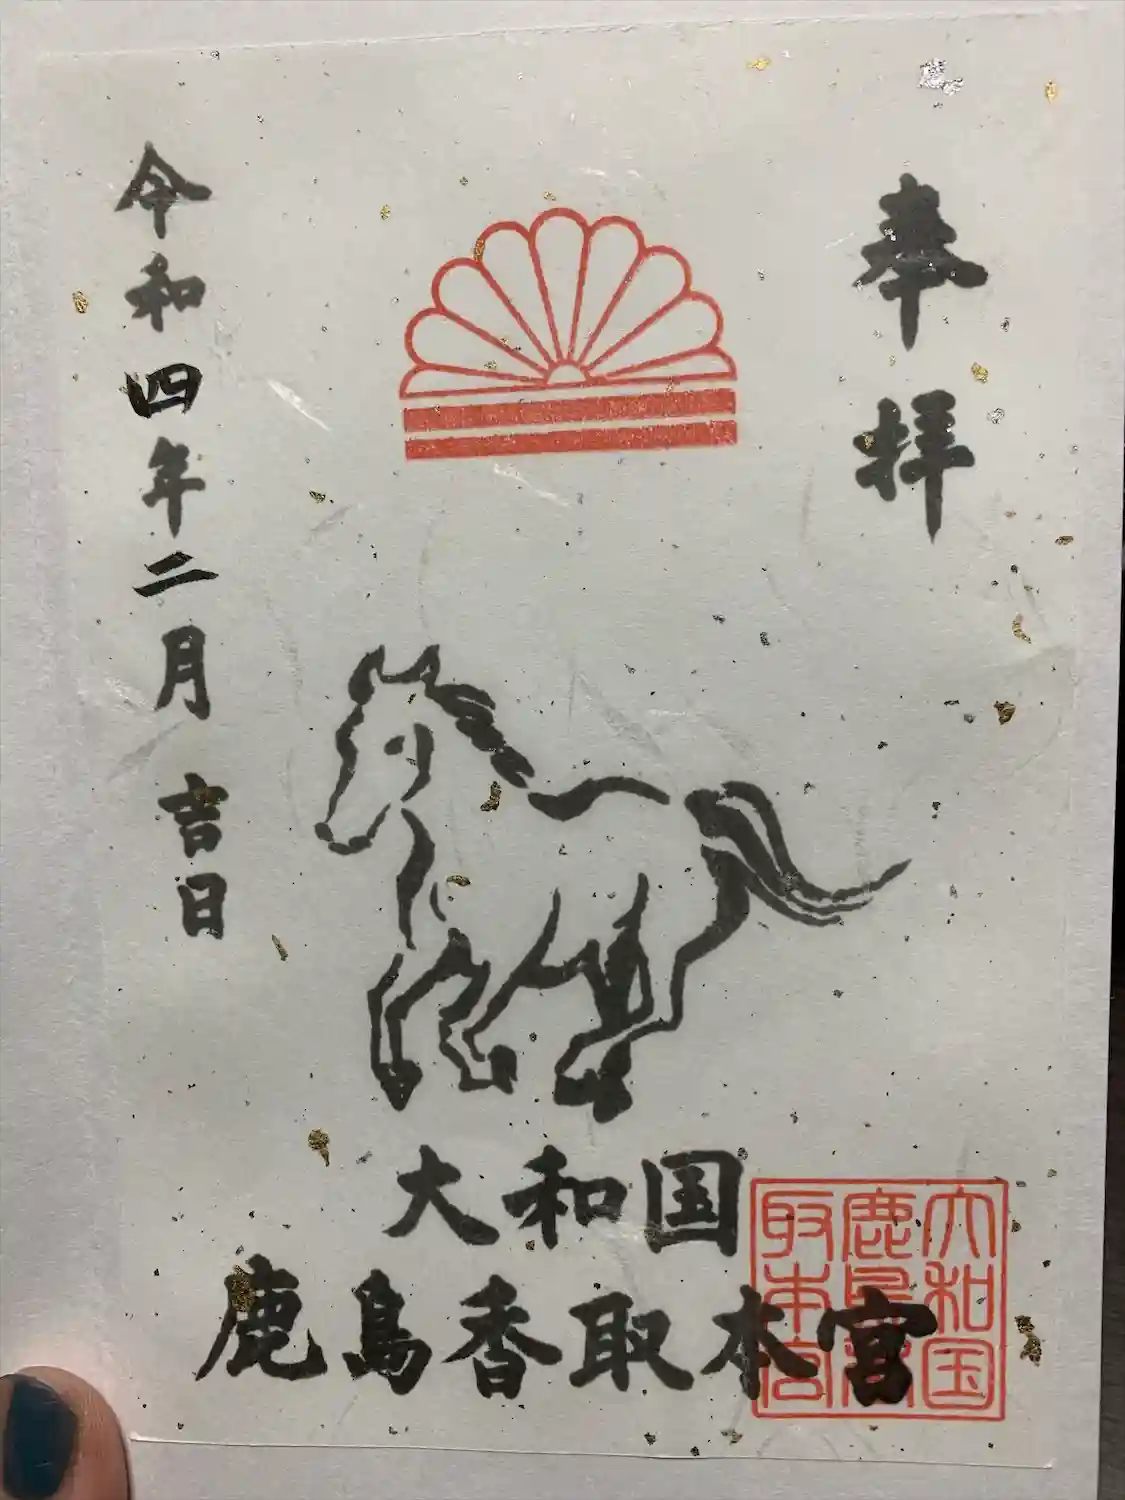 奉拝
大和国
鹿島香取本宮
大和国
鹿島香
取本宮
令和四年二月 吉日